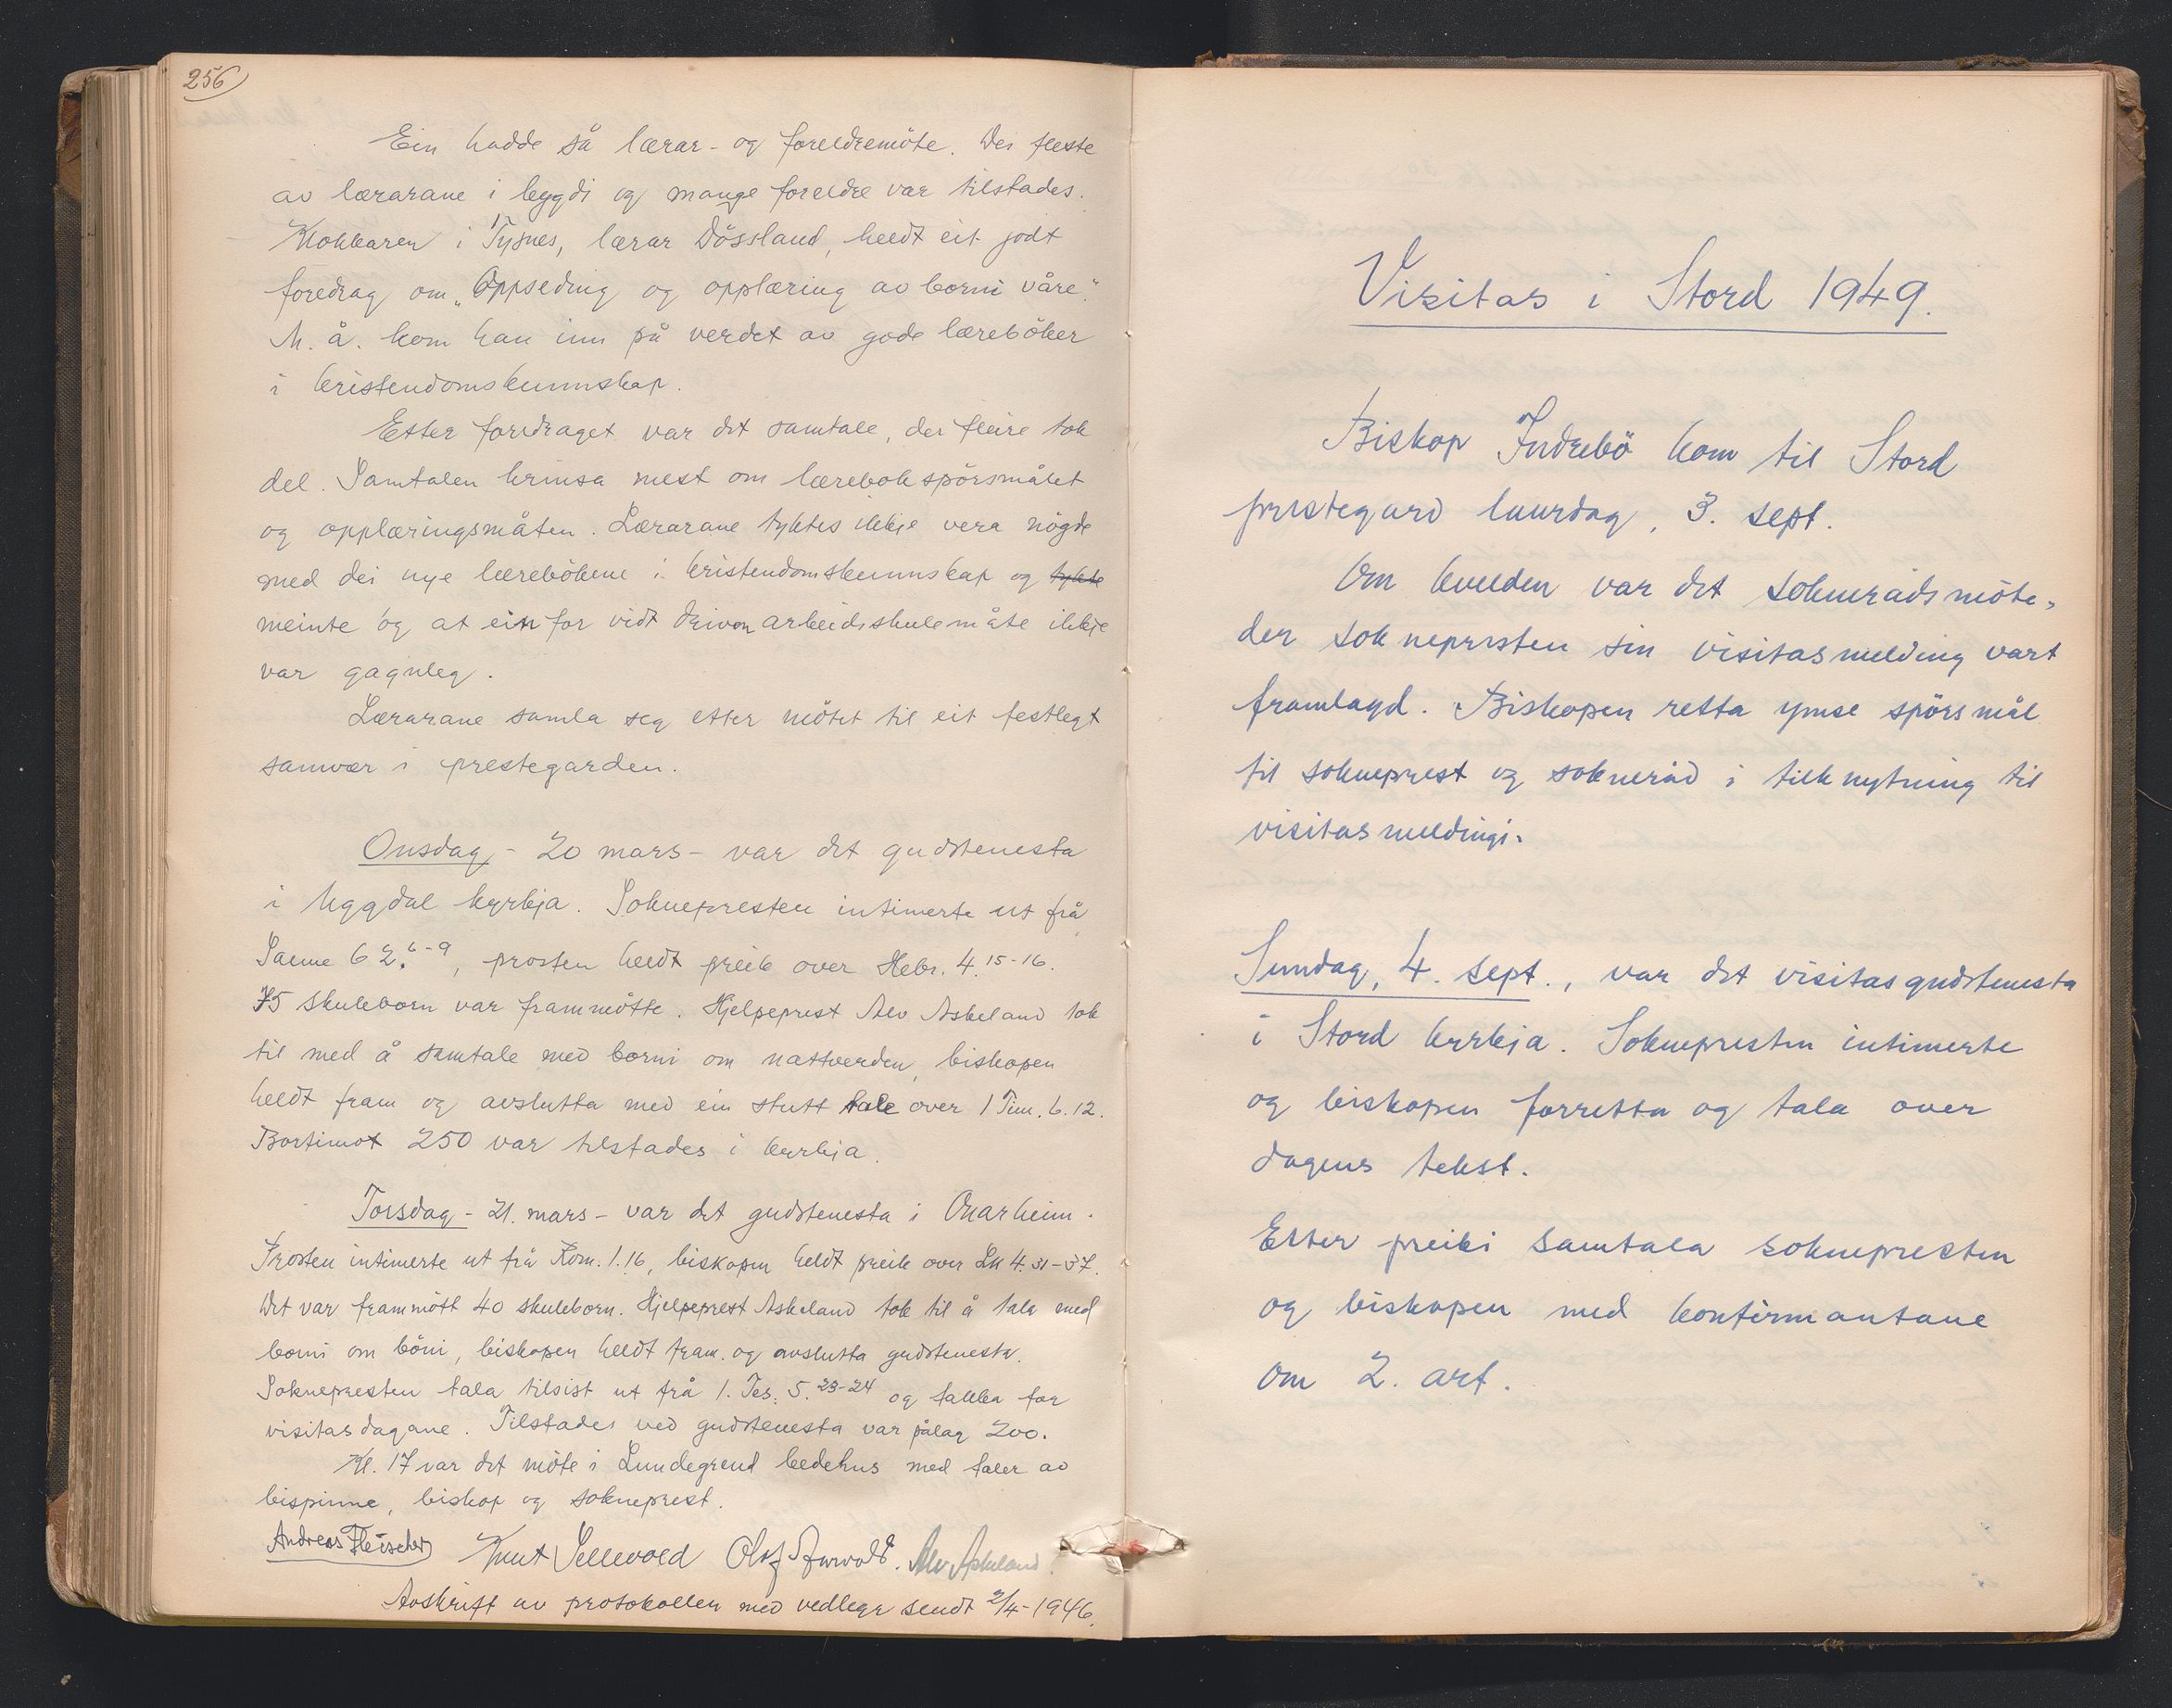 256
Ein hadde så lærar- og foreldremöte. Dei fleste
av lærarane i bygdi og mange foreldre var tilstades.
Klokkaren i Tysnes, lærar Dössland, heldt eit godt
foredrag om „Oppseding og opplæring av borni våre".
M. a. kom han inn på verdet av gode læreböker
i kristendomskunnskap.
Etter foredraget var det samtale, der fleire tok
del. Samtalen krinsa mest om lærebokspörsmålet
og opplæringsmåten. Lærarane tyktes ikkje vera nögde
med dei nye lærebökene i kristendomskunnskap og tykte
meinte òg at ein for vidt driven arbeidsskulemåte ikkje
var gagnleg.
Lærarane samla seg etter mötet til eit festlegt
samvær i prestegarden.
Onsdag - 20 mars - var det gudstenesta
i Uggdal kyrkja. Soknepresten intimerte ut frå
Salme 62. 6-9, prosten heldt preik over Hebr. 4. 15-16.
75 skuleborn var frammötte. Hjelpeprest Alv Askeland tok
til med å samtale med borni om nattverden, biskopen
heldt fram og avslutta med ein stutt tale over 1 Tim. 6. 12.
Bortimot 250 var tilstades i kyrkja.
Torsdag - 21. mars - var det gudstenesta i Onarheim.
Prosten intimerte ut frå Rom. 1. 16, biskopen heldt preik over Lk 4. 31-37.
Det var frammött 40 skuleborn. Hjelpeprest Askeland tok til å tala med
borni om böni, biskopen heldt fram og avslutta gudstenesta.
Soknepresten tala tilsist ut frå 1. Tes. 5. 23-24 og takka for
visitasdagane. Tilstades ved gudstenesta var pålag 200.
Kl. 17 var det möte i Lundegrend bedehus med taler av
bispinne, biskop og sokneprest.
Andreas Fleischer Knut Sellevold Olaf Alv Askeland.
Avskrift av protokollen med vedlegg sendt 2/4-1946.
Visitas i Stord 1949.
Biskop Indrebö kom til Stord
prestegard laurdag, 3. sept.
Om kvelden var det soknerådsmöte,
der soknepresten sin visitasmelding vart
framlagd. Biskopen retta ymse spörsmål
til sokneprest og sokneråd i tilknytning til
visitasmeldingi.
Sundag, 4. sept., var det visitasgudstenesta
i Stord kyrkja. Soknepresten intimerte
og biskopen forretta og tala over
dagens tekst.
Etter preiki samtala soknepresten
og biskopen med konfirmantane
om 2. art.